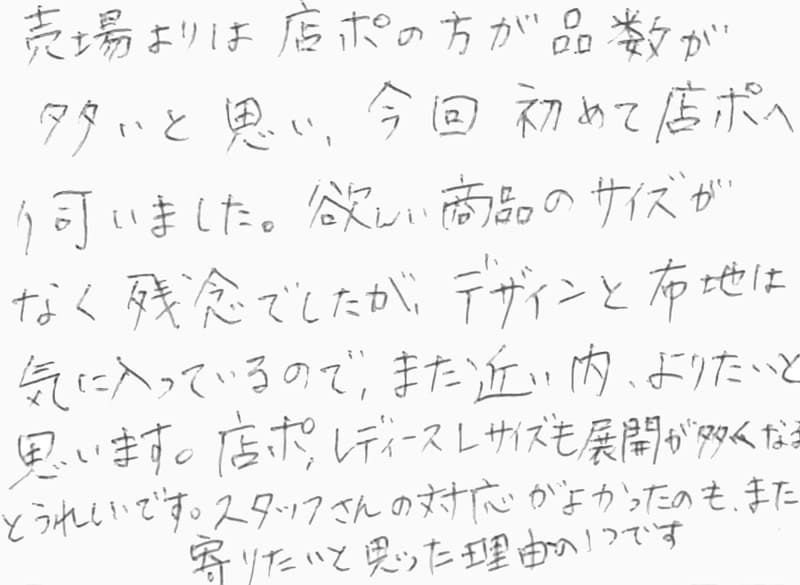 売場よりは店ポの方が品数が
多いと思い、今回初めて店ポへ
伺いました。欲しい商品のサイズが
なく残念でしたが、デザインと布地は
気に入っているので、また近い内、よりたいと
思います。店ポ、レディースLサイズも展開が多くなる
とうれしいです。スタッフさんの対応がよかったのも、また
寄りたいと思った理由の1つです